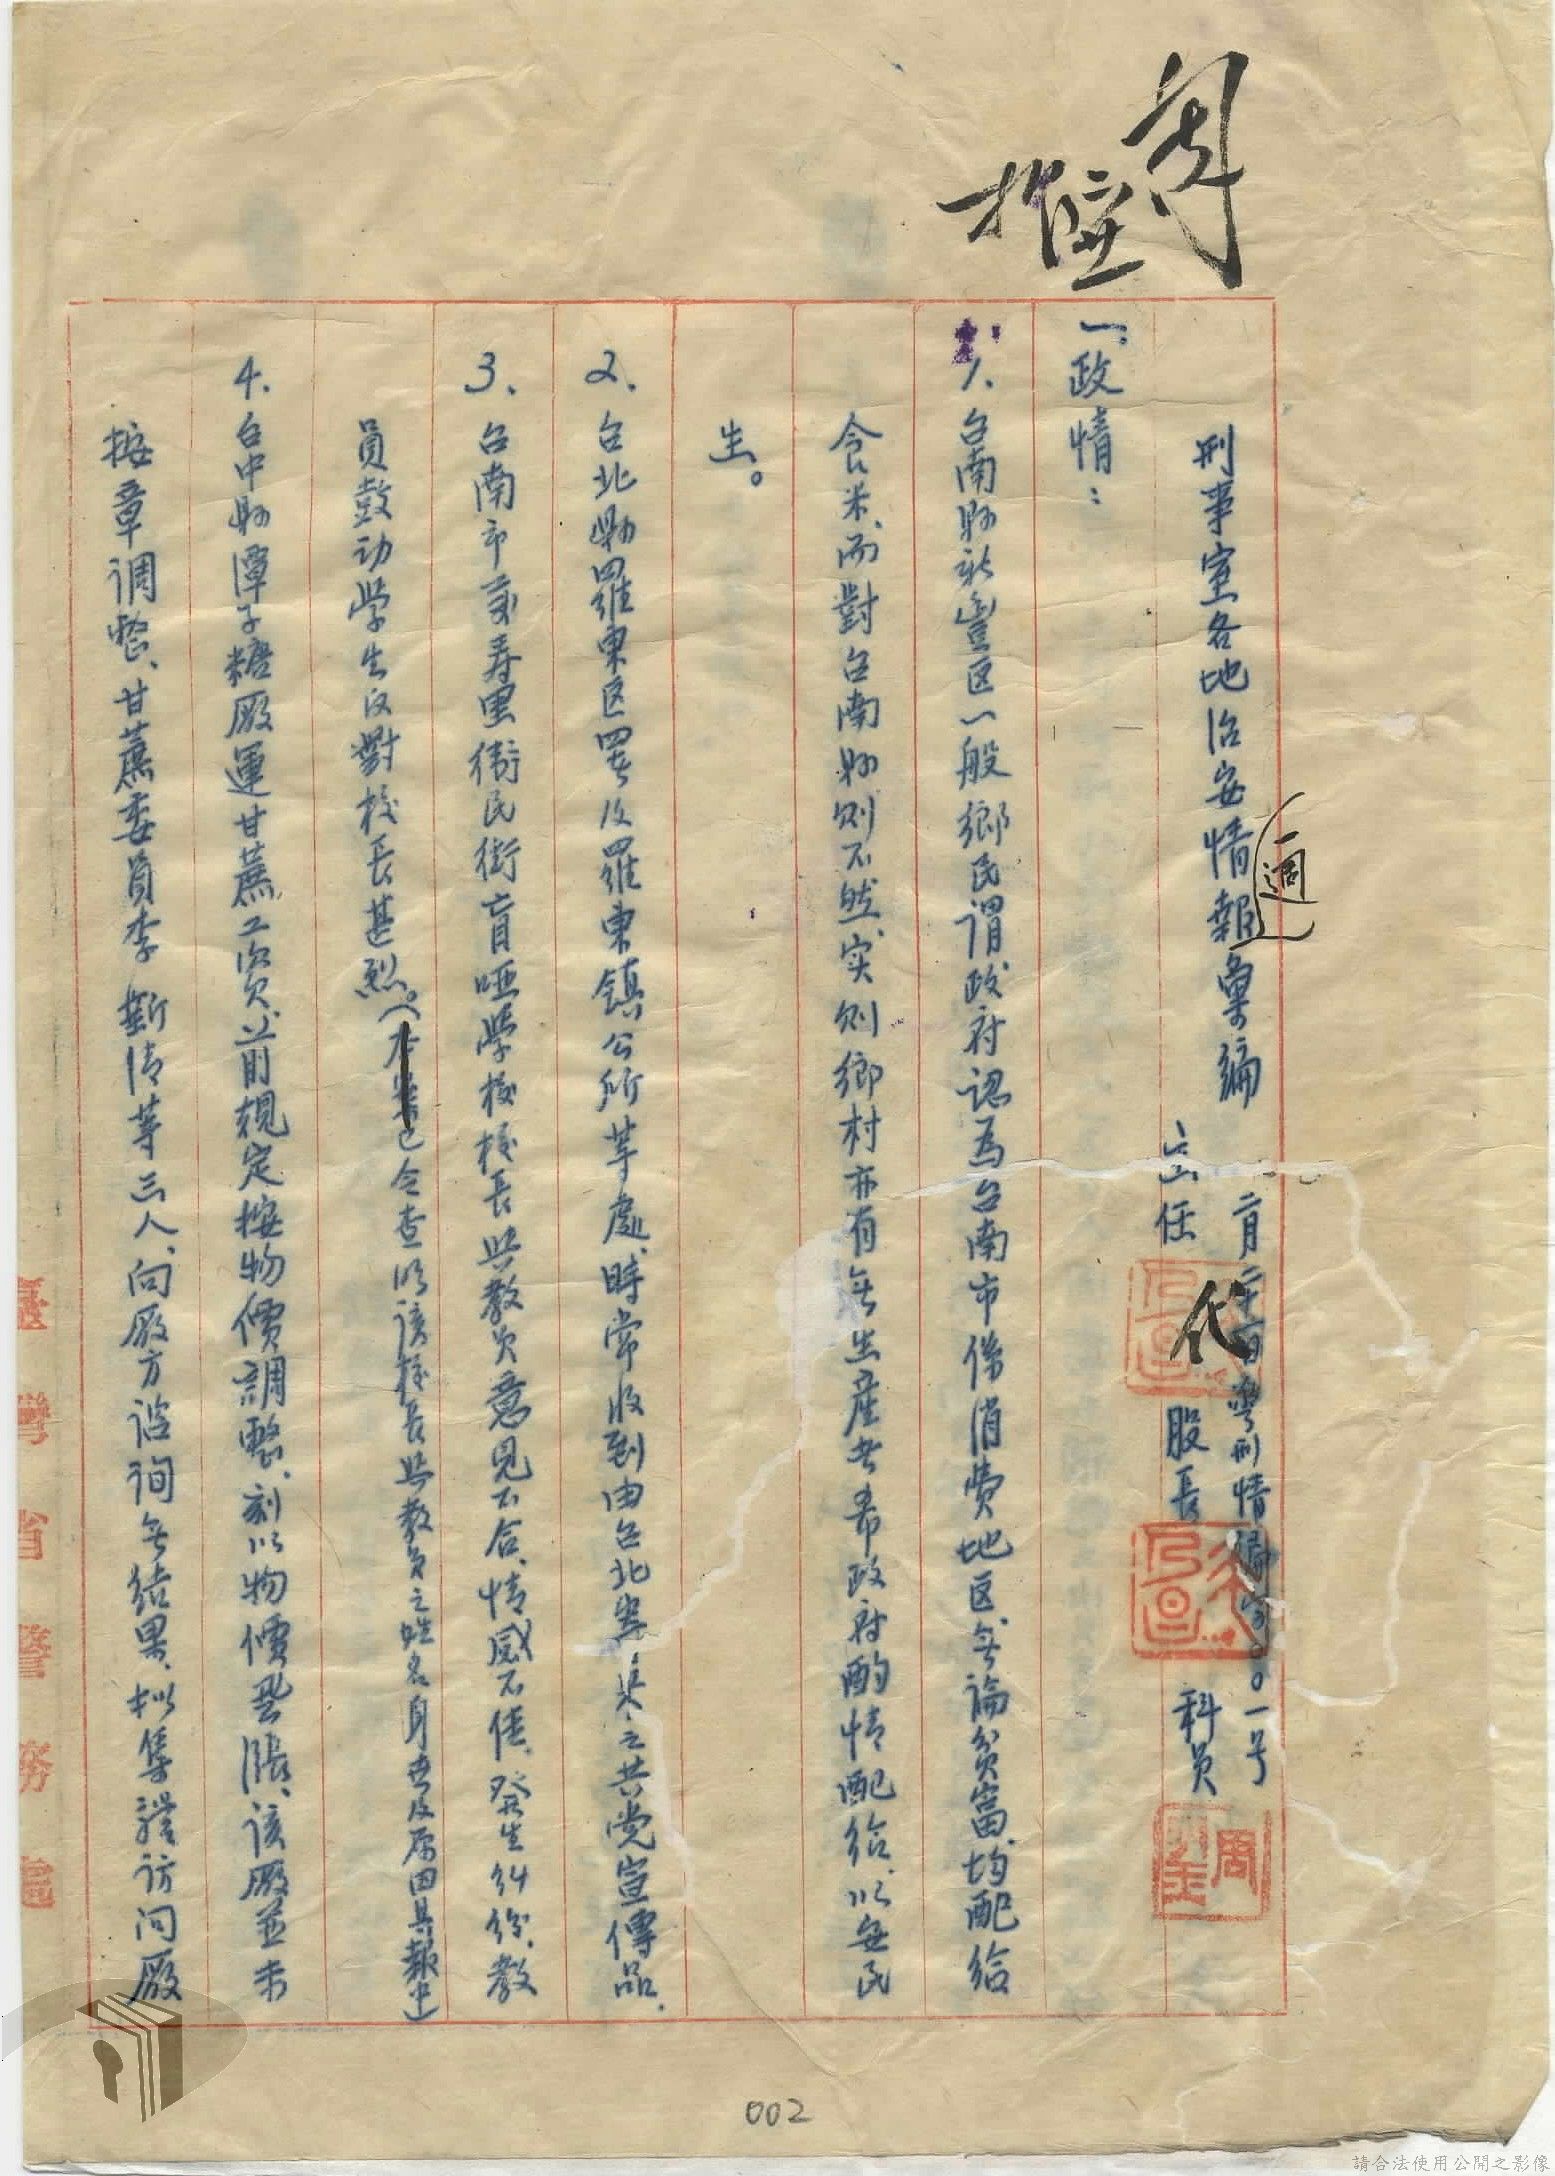 刑事室各地治安情報彙編
一週
二月二十一日 刑情編字三〇〇一号
主任 代 股長 科員
周
一、政情：
1、台南縣新豐区一般鄉民謂政府認為台南市係消費地区，無論貧富，均配給
食米，而對台南縣则不然，实则鄉村亦有無生産者，希政府酌情配給，以安民
生。
2. 台北縣羅東区署及羅東鎮公所等處，時常收到由台北寄來之共党宣傳品。
3. 台南市永寿里衛民街盲啞学校校長與教員意見不合，情感不佳，発生糾紛，教
員鼓动学生反對校長甚烈。（已令查明該校長與教員之姓名身世及原因具報中
4. 台中縣潭子糖廠運甘蔗工資，前規定按物價調整，刻以物價暴漲，該廠並未
按章调整，甘蔗委員李新清等三人，向廠方詢無結果，拟集體访问廠
臺灣省警務處
002
請合法使用公開之影像